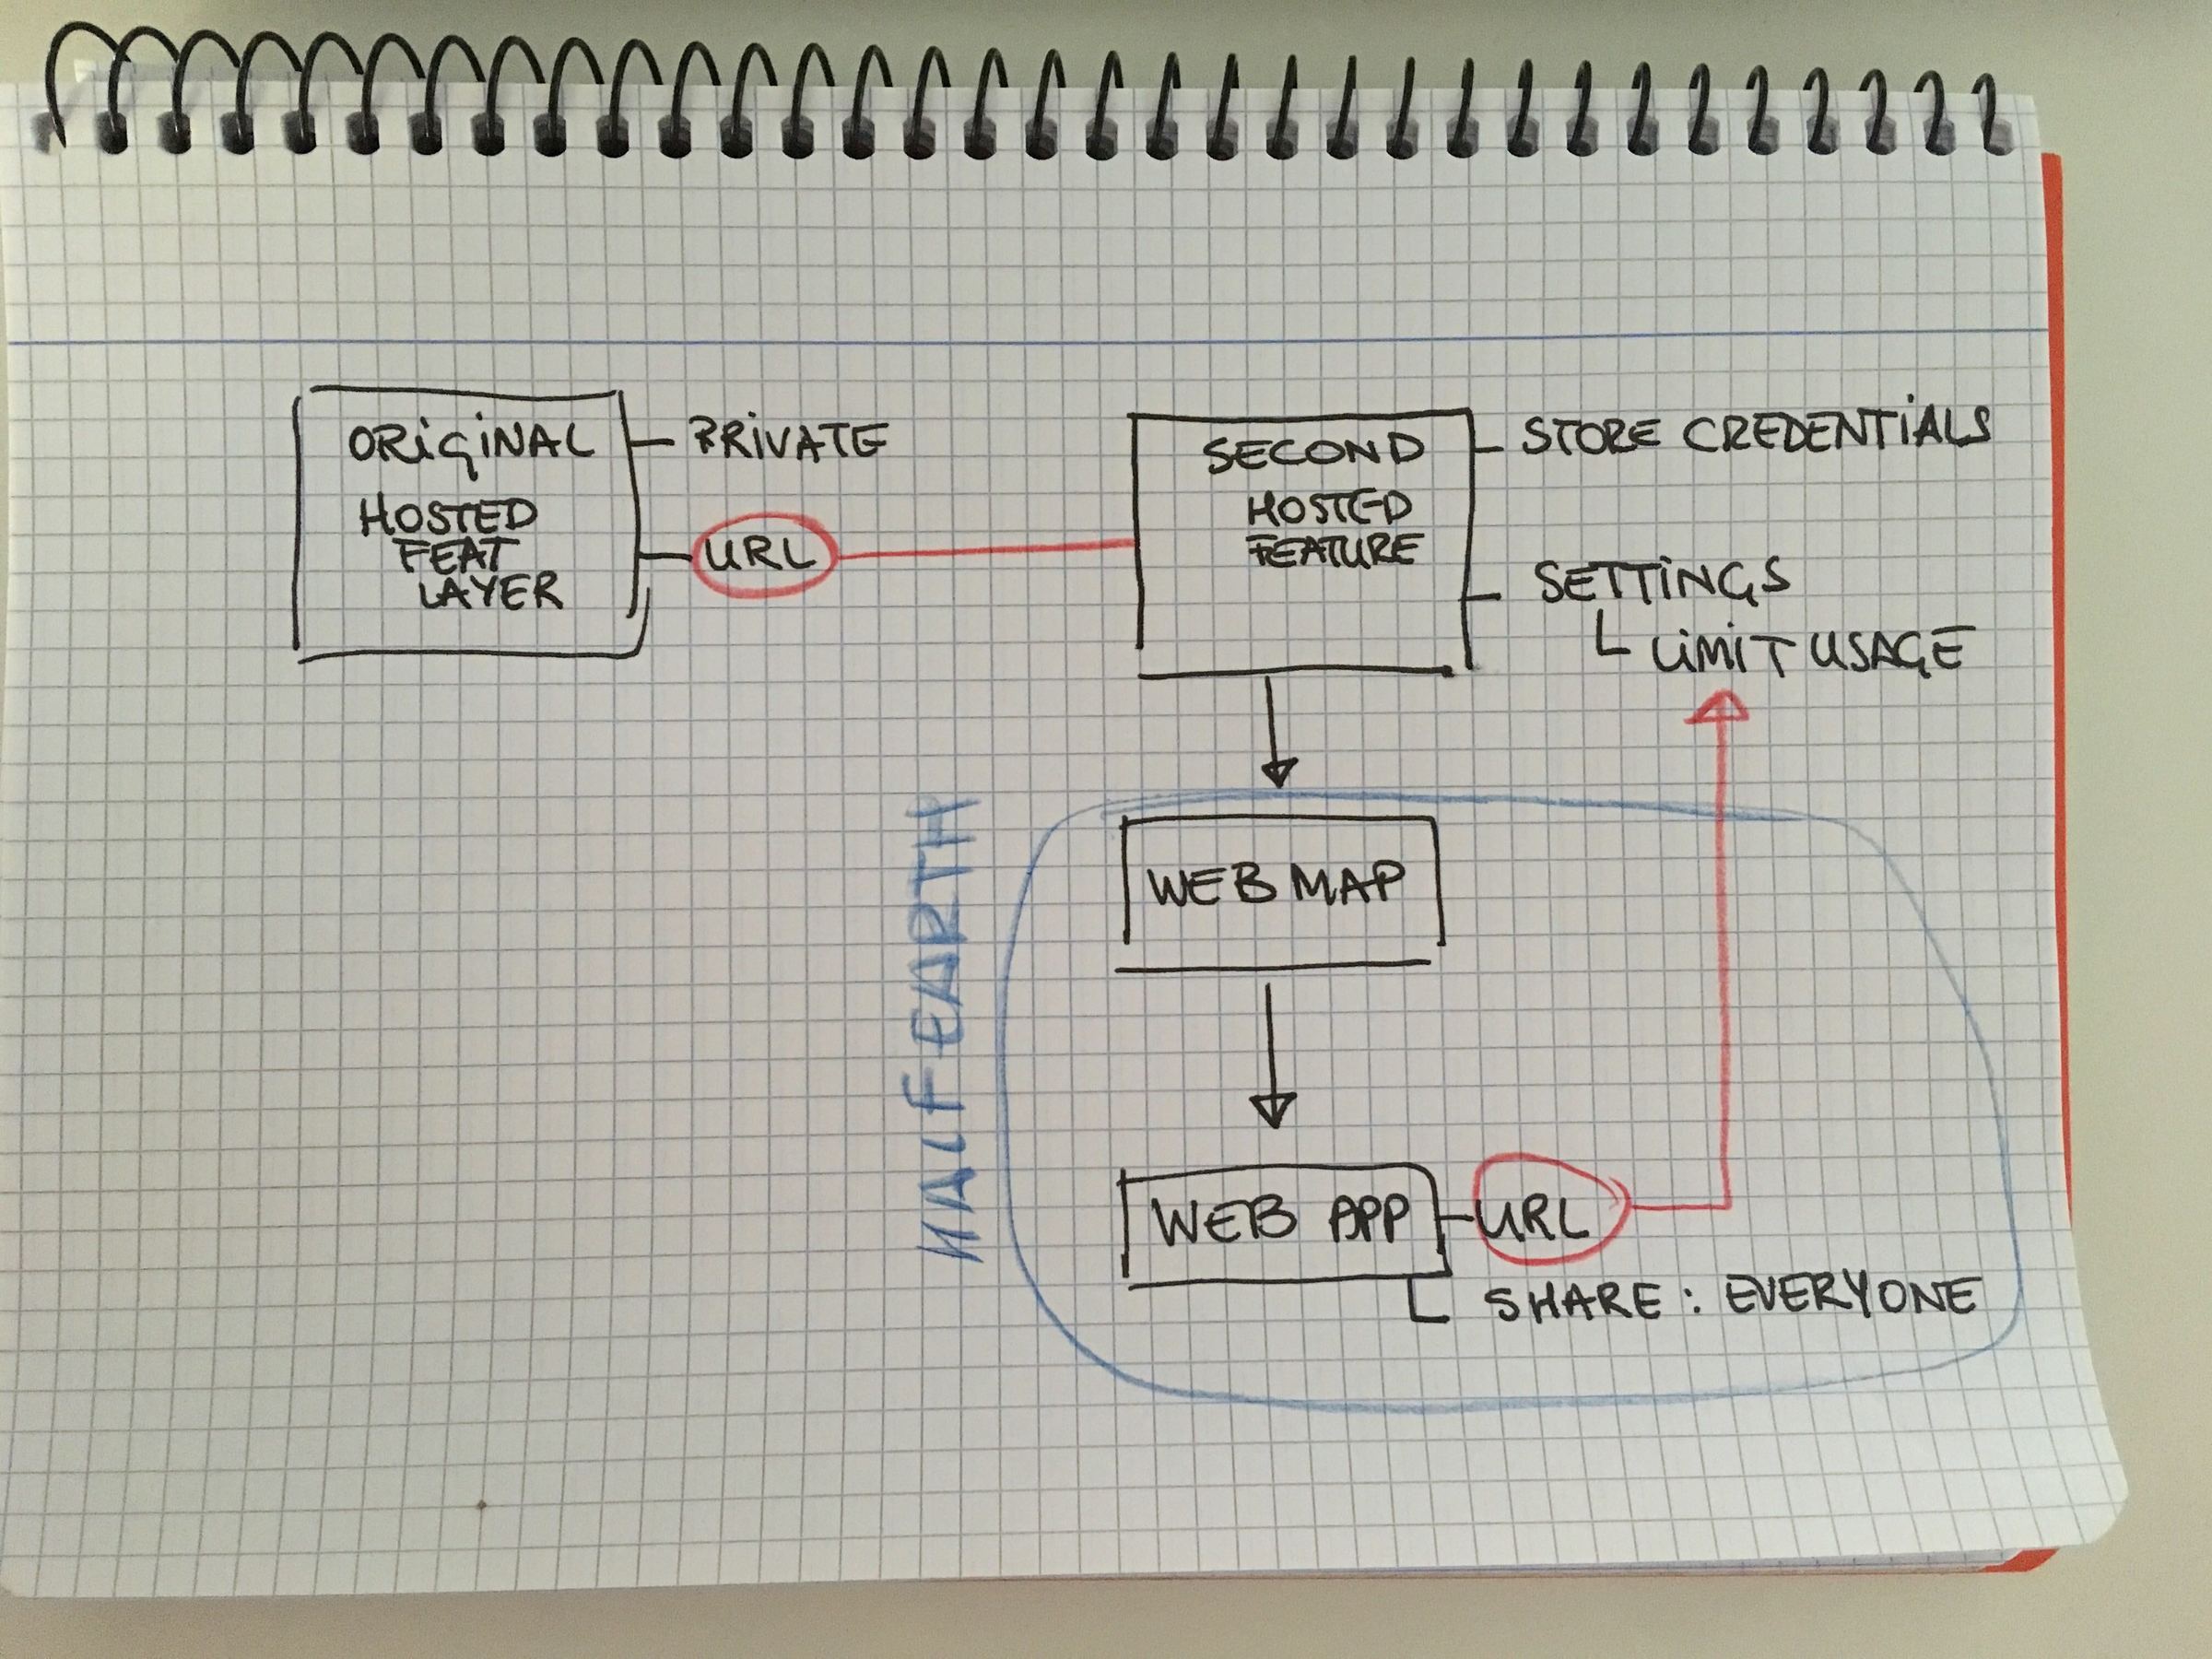 ORIGINAL
HOSTED
FEAT
LAYER
PRIVATE
URL
SECOND
HOSTED
FEATURE
STORE CREDENTIALS
SETTINGS
LIMIT USAGE
HALF EARTH
WEB MAP
WEB APP
URL
SHARE: EVERYONE